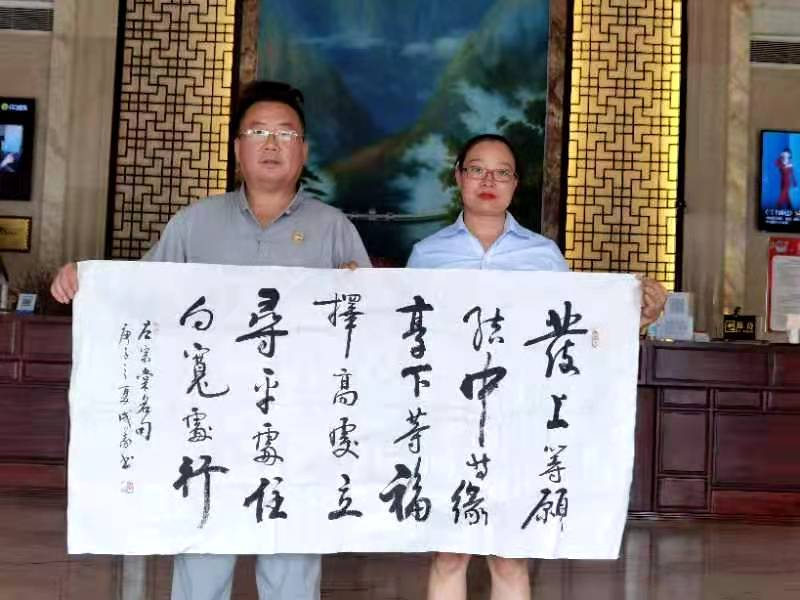 發上等願
結中等緣
享下等福
擇高處立
尋平處住
向寬處行
左宗棠名句
庚子之夏成豪书